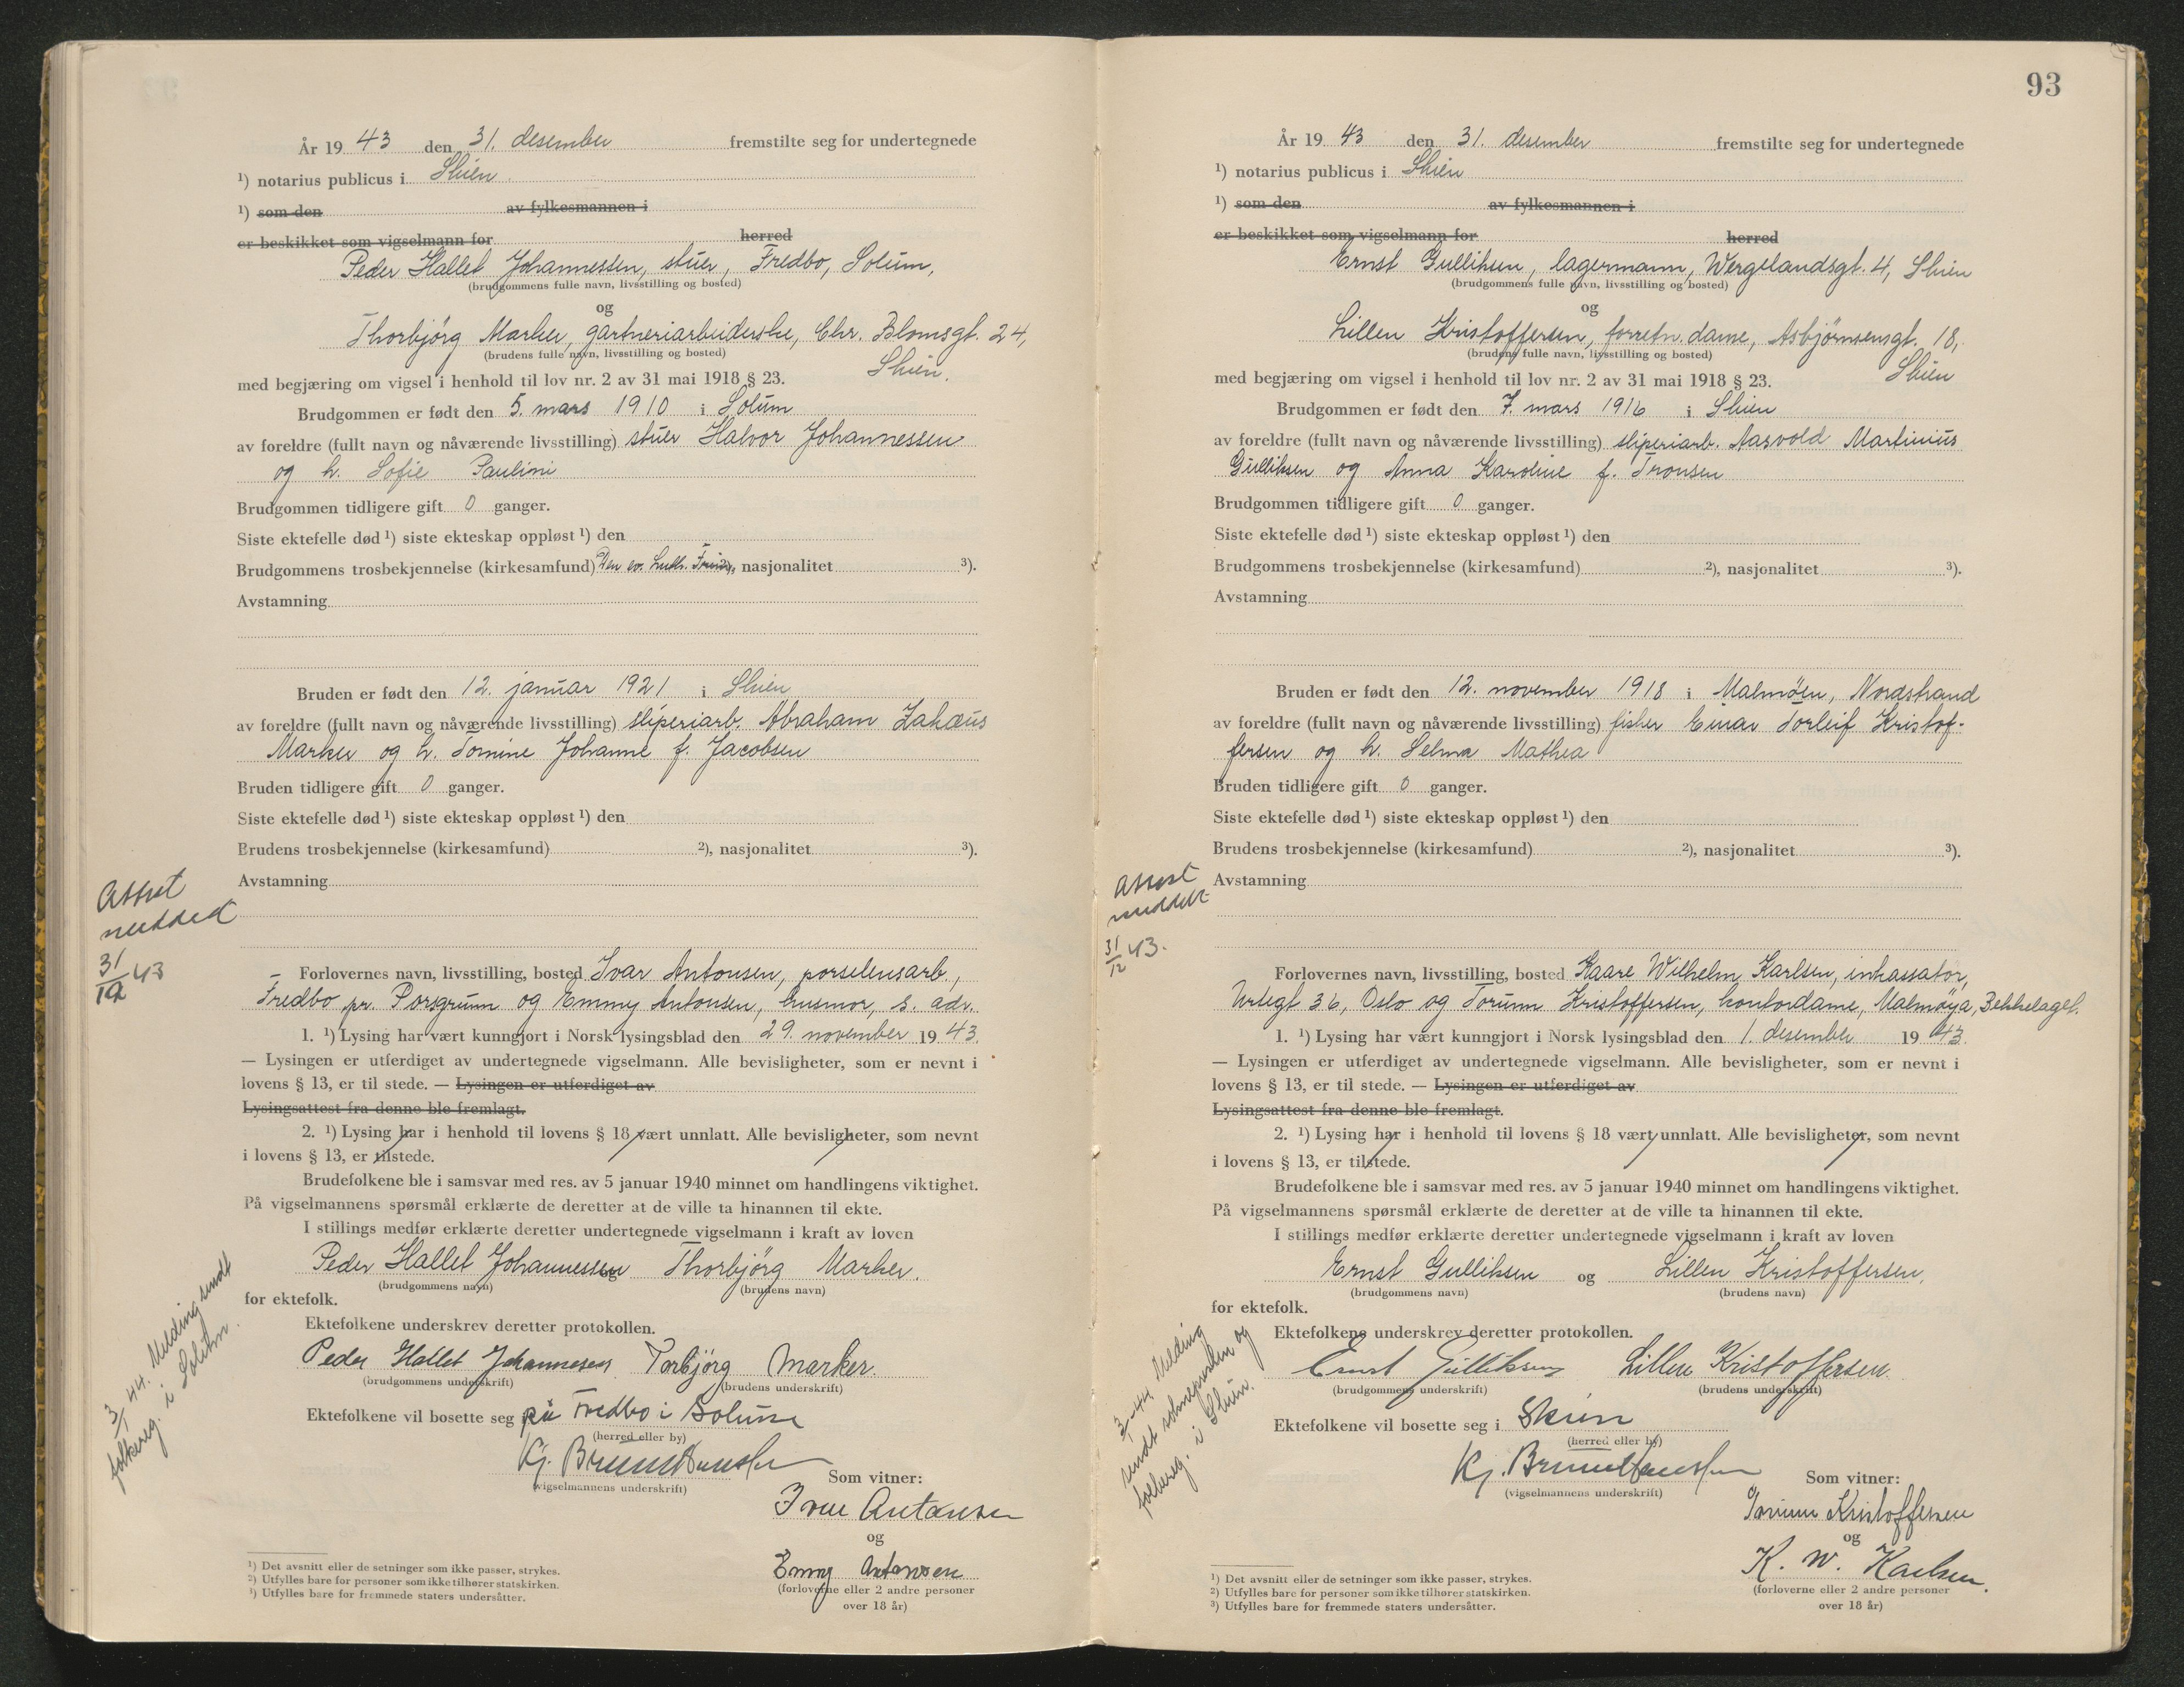 År 19 43 den 31. desember fremstilte seg for undertegnede
¹) notarius publicus i Skien.
¹) som den av fylkesmannen i
er beskikket som vigselmann for herred
Peder Hallet Johannessen, stuer, Fredbo, Solum,
(brudgommens fulle navn, livsstilling og bosted)
og
Thorbjörg Marker, gartneriarbeiderske, Chr. Blomsgt. 24,
(brudens fulle navn, livsstilling og bosted)
Skien.
med begjæring om vigsel i henhold til lov nr. 2 av 31 mai 1918 § 23.
Brudgommen er født den 5. mars 1910 i Solum
av foreldre (fullt navn og nåværende livsstilling) stuer Halvor Johannessen
og h. Sofie Paulini
Brudgommen tidligere gift 0 ganger.
Siste ektefelle død ¹) siste ekteskap oppløst ¹) den
Brudgommens trosbekjennelse (kirkesamfund) Den ev. luth. nasjonalitet ³).
Avstamning
Bruden er født den 12. januar 1921 i Skien
av foreldre (fullt navn og nåværende livsstilling) sliperiarb. Abraham Zakæus
Marker og h. Tomine Johanne f. Jacobsen
Bruden tidligere gift 0 ganger.
Siste ektefelle død ¹) siste ekteskap oppløst ¹) den
Brudens trosbekjennelse (kirkesamfund) ²), nasjonalitet ³).
Avstamning
Attest
meddelt
31/12 43
Forlovernes navn, livsstilling, bosted Ivar Antonsen, porselensarb.,
Fredbo pr. Porsgrunn og Emmy Antonsen, husmor, s. adr.
1. ¹) Lysing har vært kunngjort i Norsk lysingsblad den 29. november 19 43.
— Lysingen er utferdiget av undertegnede vigselmann. Alle bevisligheter, som er nevnt i
lovens § 13, er til stede. — Lysingen er utferdiget av
Lysingsattest fra denne ble fremlagt.
2. ¹) Lysing har i henhold til lovens § 18 vært unnlatt. Alle bevisligheter, som nevnt
i lovens § 13, er tilstede.
Brudefolkene ble i samsvar med res. av 5 januar 1940 minnet om handlingens viktighet.
På vigselmannens spørsmål erklærte de deretter at de ville ta hinannen til ekte.
I stillings medfør erklærte deretter undertegnede vigselmann i kraft av loven
Peder Hallet Johannessen og Thorbjörg Marker.
(brudgommens navn) (brudens navn)
for ektefolk.
Ektefolkene underskrev deretter protokollen.
Peder Hallet Johannesen Torbjörg Marker.
(brudgommens underskrift) (brudens underskrift)
3/1 44. Melding sendt
folkereg. i Solum.
Ektefolkene vil bosette seg på Fredbo i Solum
(herred eller by)
(vigselmannens underskrift)
Som vitner:
Ivar Antonsen
og
Emmy Antonsen
(forloverne eller 2 andre personer
over 18 år)
¹) Det avsnitt eller de setninger som ikke passer, strykes.
²) Utfylles bare for personer som ikke tilhører statskirken.
³) Utfylles bare for fremmede staters undersåtter.
93
År 19 43 den 31. desember fremstilte seg for undertegnede
¹) notarius publicus i Skien
¹) som den av fylkesmannen i
er beskikket som vigselmann for herred
Ernst Gulliksen, lagermann, Wergelandsgt. 4, Skien
(brudgommens fulle navn, livsstilling og bosted)
og
Lillen Kristoffersen, forretn.dame, Asbjørnsensgt. 18,
(brudens fulle navn, livsstilling og bosted)
Skien
med begjæring om vigsel i henhold til lov nr. 2 av 31 mai 1918 § 23.
Brudgommen er født den 7. mars 1916 i Skien
av foreldre (fullt navn og nåværende livsstilling) sliperiarb. Aasvold Martinius
Gulliksen og Anna Karoline f. Tronsen
Brudgommen tidligere gift 0 ganger.
Siste ektefelle død ¹) siste ekteskap oppløst ¹) den
Brudgommens trosbekjennelse (kirkesamfund) ²), nasjonalitet ³).
Avstamning
Bruden er født den 12. november 1918 i Malmöen, Nordstrand
av foreldre (fullt navn og nåværende livsstilling) fisker Einar Torleif Kristof-
fersen og h. Selma Mathea
Bruden tidligere gift 0 ganger.
Siste ektefelle død ¹) siste ekteskap oppløst ¹) den
Brudens trosbekjennelse (kirkesamfund) ²), nasjonalitet ³).
Avstamning
Attest
meddelt
31/12 43.
Forlovernes navn, livsstilling, bosted Kaare Wilhelm Karlsen, inkassator,
Urtegt 36, Oslo og Torunn Kristoffersen, kontordame, Malmøya, Bekkelaget.
1. ¹) Lysing har vært kunngjort i Norsk lysingsblad den 1. desember 19 43.
— Lysingen er utferdiget av undertegnede vigselmann. Alle bevisligheter, som er nevnt i
lovens § 13, er til stede. — Lysingen er utferdiget av
Lysingsattest fra denne ble fremlagt.
2. ¹) Lysing har i henhold til lovens § 18 vært unnlatt. Alle bevisligheter, som nevnt
i lovens § 13, er tilstede.
Brudefolkene ble i samsvar med res. av 5 januar 1940 minnet om handlingens viktighet.
På vigselmannens spørsmål erklærte de deretter at de ville ta hinannen til ekte.
I stillings medfør erklærte deretter undertegnede vigselmann i kraft av loven
Ernst Gulliksen og Lillen Kristoffersen,
(brudgommens navn) (brudens navn)
for ektefolk.
Ektefolkene underskrev deretter protokollen.
Ernst Gulliksen Lillen Kristoffersen.
(brudgommens underskrift) (brudens underskrift)
3/1 44 Melding
sendt sokneprsten og
folkereg. i Skien.
Ektefolkene vil bosette seg i Skien
(herred eller by)
(vigselmannens underskrift)
Som vitner:
Torunn Kristoffersen
og
K. W. Karlsen.
(forloverne eller 2 andre personer
over 18 år)
¹) Det avsnitt eller de setninger som ikke passer, strykes.
²) Utfylles bare for personer som ikke tilhører statskirken.
³) Utfylles bare for fremmede staters undersåtter.